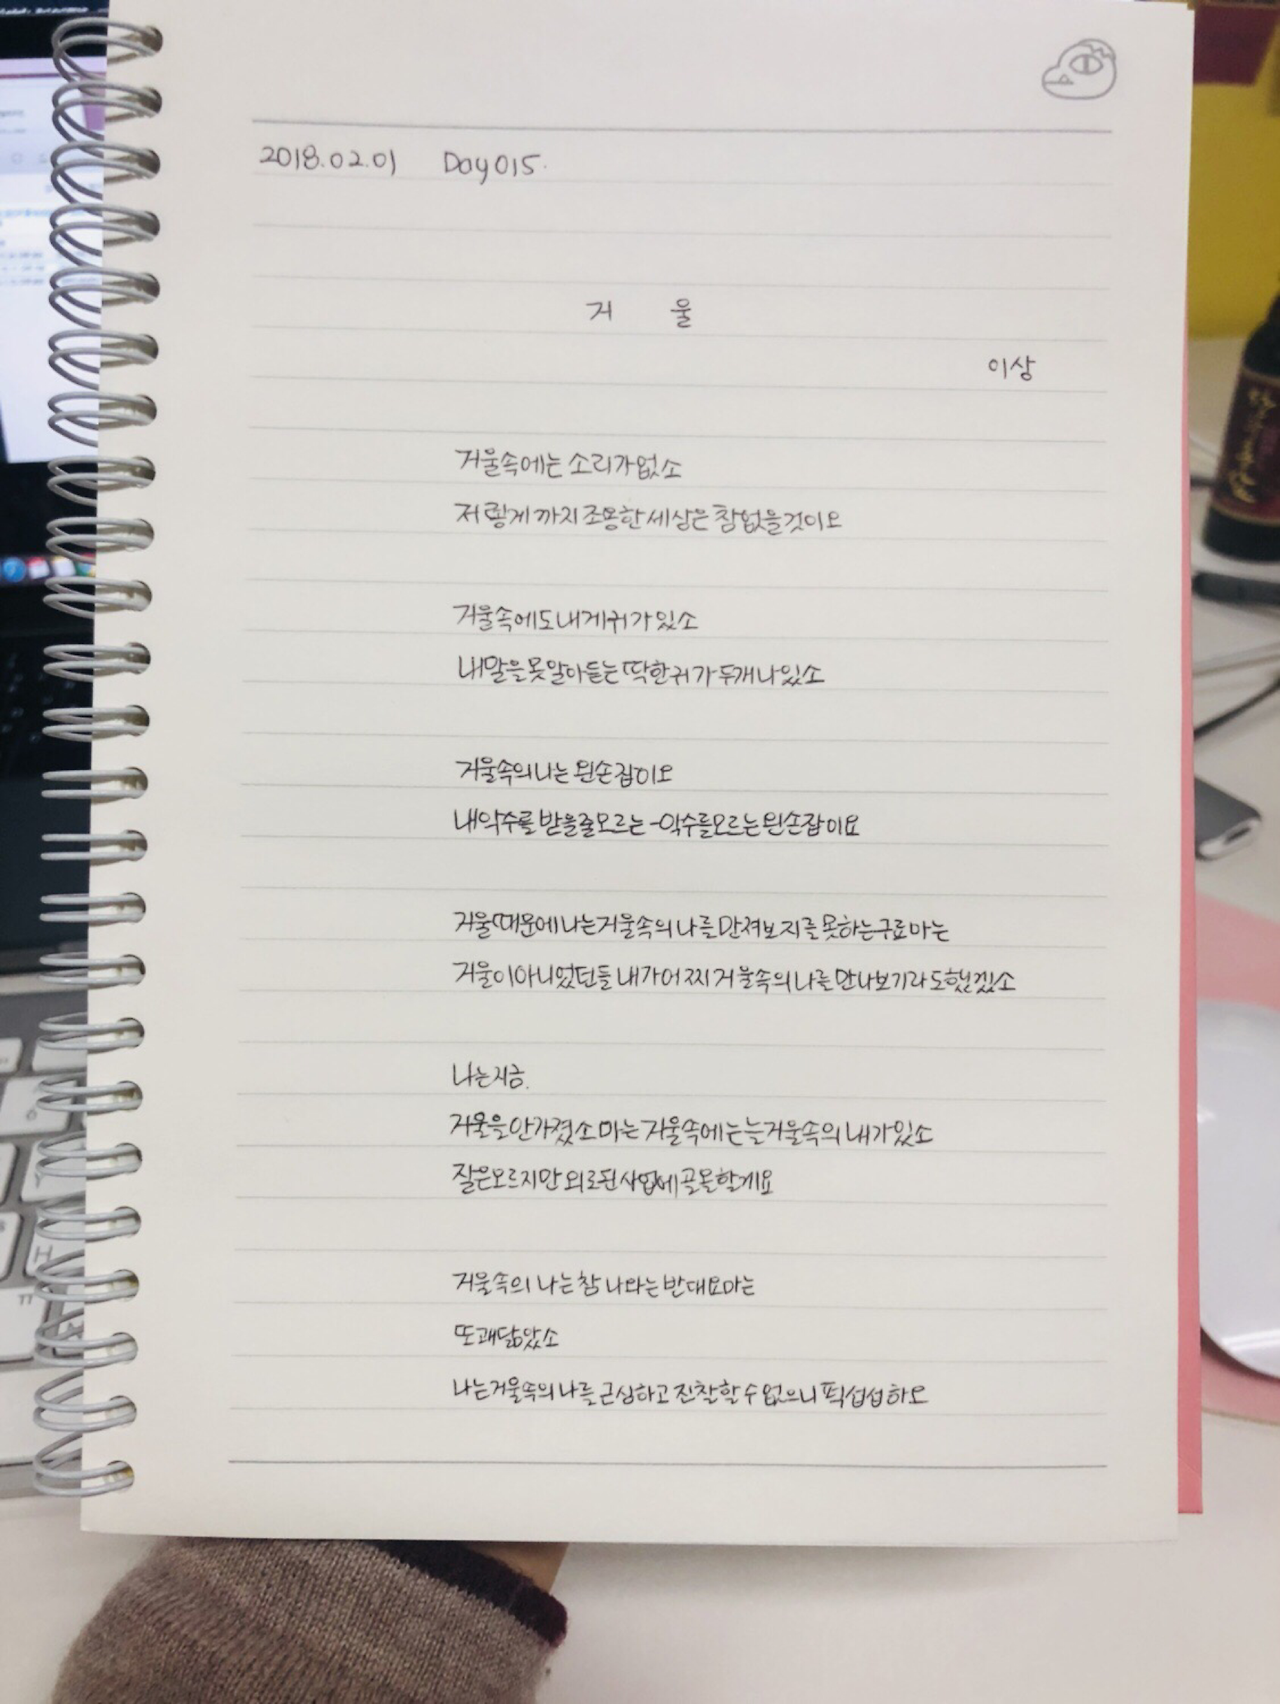 2018.02.01 Day015.
거 울
이상
거울속에는 소리가없소
저렇게까지조용한세상은 참없을것이오
거울속에도내게귀가있소
내말을못알아듣는딱한귀가두개나있소
거울속의나는 왼손잡이오
내악수를 받을줄모르는-악수를모르는왼손잡이요
거울때문에나는거울속의나를만져보지를못하는구료마는
거울이아니었던들내가어찌거울속의나를만나보기라도했겠소
나는지금.
거울을안가졌소마는거울속에는늘거울속의내가있소
잘은모르지만외로된사업에골몰할게요
거울속의나는참나와는반대요마는
또괘닮았소
나는거울속의나를근심하고진찰할수없으니퍽섭섭하오